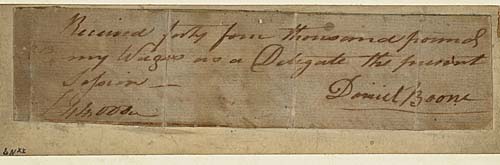 Received forty four thousand pounds
my Wages as a Delegate the present
Session —
Daniel Boone
£44000